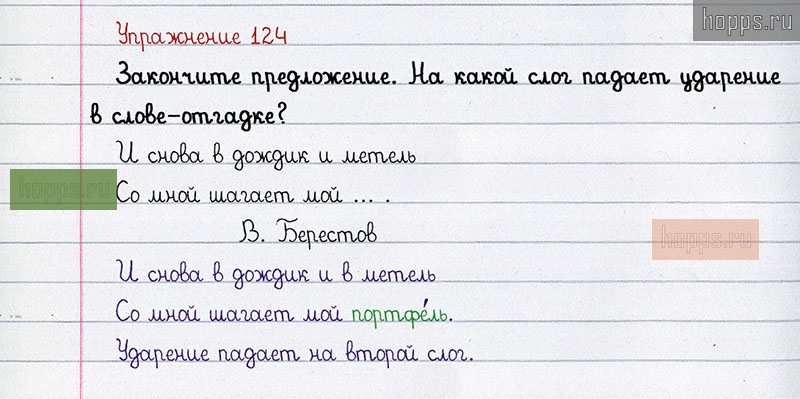 hopps.ru
Упражнение 124
Закончите предложение. На какой слог падает ударение
в слове-отгадке?
И снова в дождик и метель
hopps.ru
Со мной шагает мой ... .
В. Берестов
hopps.ru
И снова в дождик и в метель
Со мной шагает мой портфе́ль.
Ударение падает на второй слог.